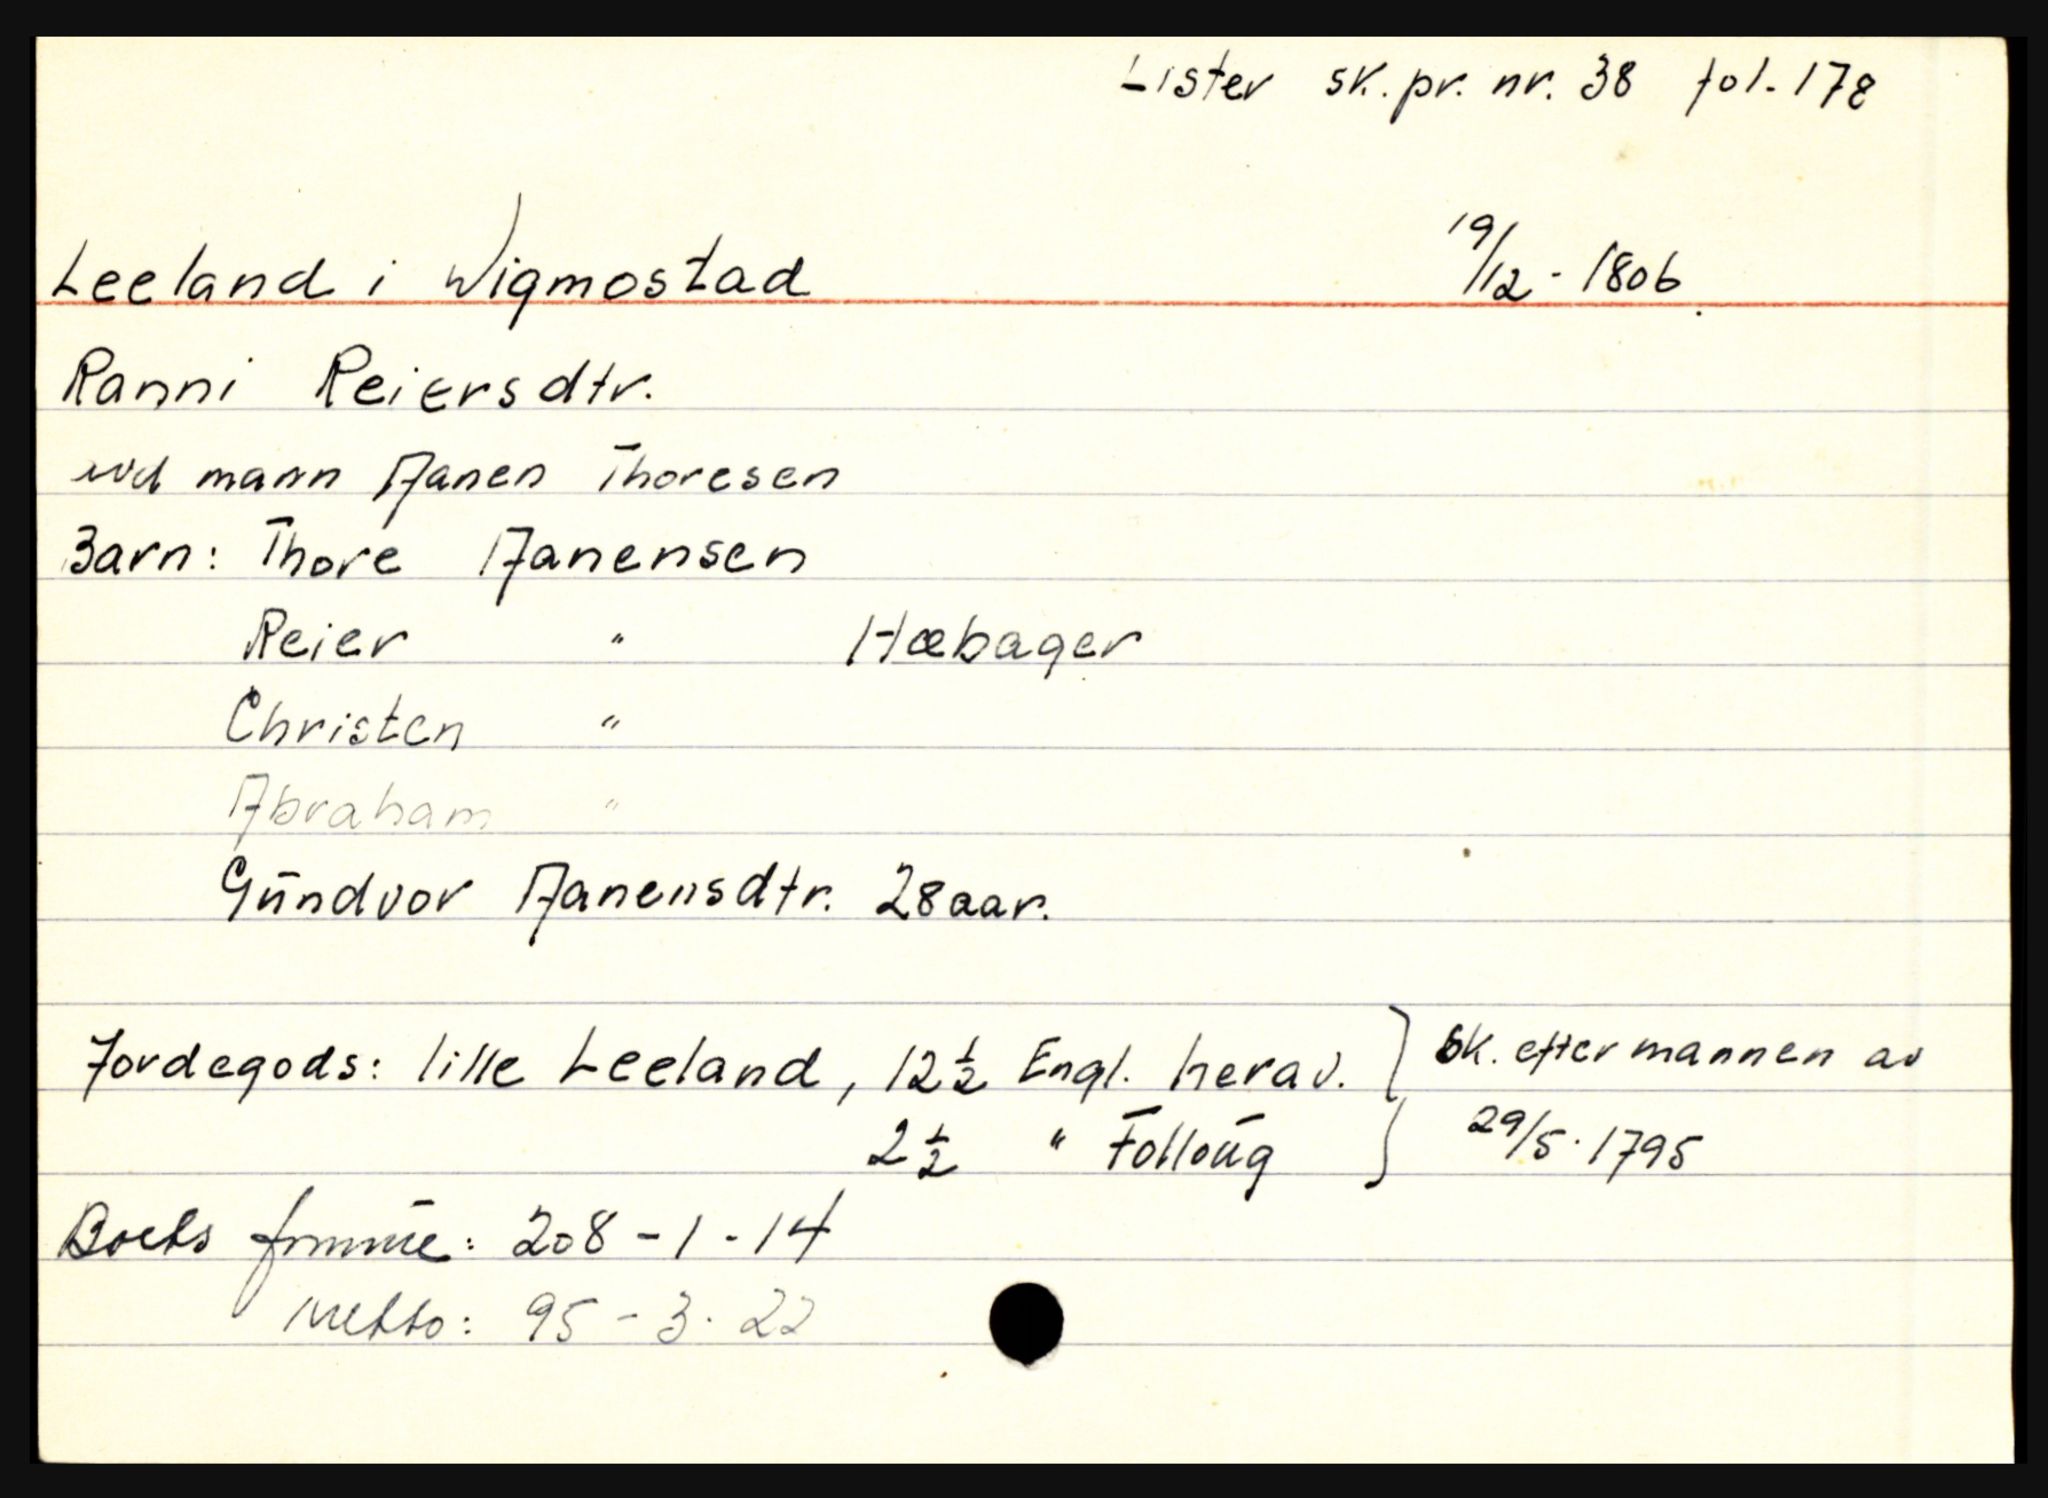 Lister sk. pr. nr. 38 fol. 178
Leeland i Wigmostad 19/12 - 1806
Ranni Reiersdtr.
mann Aanen Thoresen
Barn: Thore Aanensen
Reier " Hæbager
Christen "
Abraham "
Gūndvor Aanensdtr. 28 aar.
Jordegods: lille Leeland, 12½ Engl. herav. } Sk. efter mannen av
2½ " Folloūg } 29/5. 1795
Boets : 208 - 1 - 14
Netto: 95 - 3 - 22